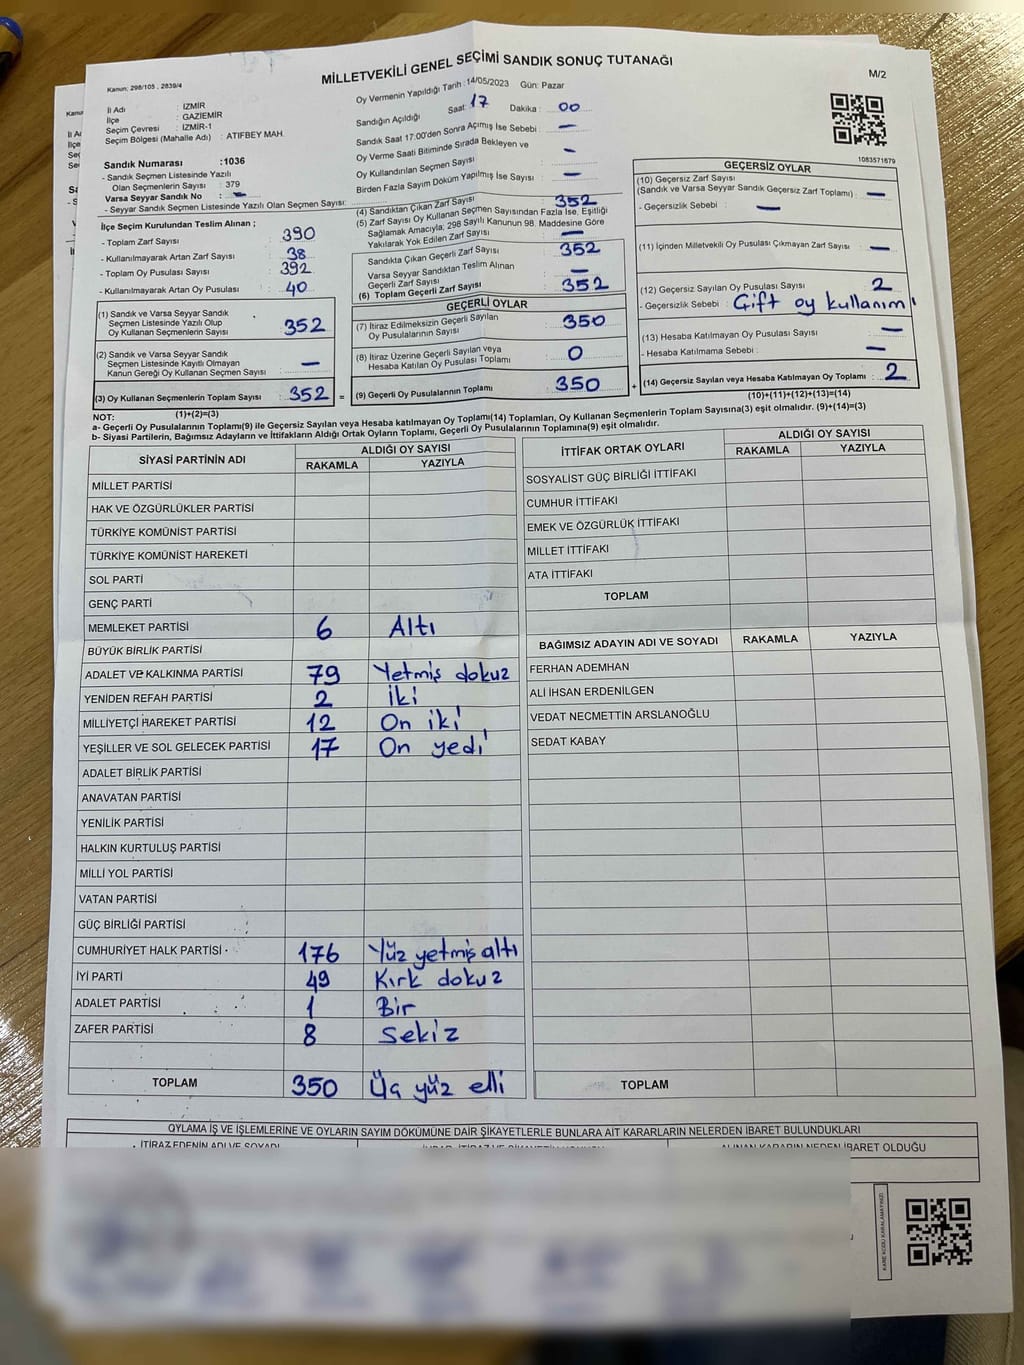 MİLLETVEKİLİ GENEL SEÇİMİ SANDIK SONUÇ TUTANAĞI
M/2
Kanun: 298/105 , 2839/4
İl Adı : İZMİR
İlçe : GAZİEMİR
Seçim Çevresi : İZMİR-1
Seçim Bölgesi (Mahalle Adı) : ATIFBEY MAH.
Sandık Numarası :1036
- Sandık Seçmen Listesinde Yazılı
Olan Seçmenlerin Sayısı : 379
Varsa Seyyar Sandık No : –
- Seyyar Sandık Seçmen Listesinde Yazılı Olan Seçmen Sayısı:
Oy Vermenin Yapıldığı Tarih : 14/05/2023 Gün: Pazar
Sandığın Açıldığı Saat: 17 Dakika : 00
Sandık Saat 17:00'den Sonra Açımış İse Sebebi : –
Oy Verme Saati Bitiminde Sırada Bekleyen ve
Oy Kullandırılan Seçmen Sayısı : –
Birden Fazla Sayım Döküm Yapılmış İse Sayısı : –
İlçe Seçim Kurulundan Teslim Alınan ;
- Toplam Zarf Sayısı : 390
- Kullanılmayarak Artan Zarf Sayısı : 38
- Toplam Oy Pusulası Sayısı : 392
- Kullanılmayarak Artan Oy Pusulası : 40
(1) Sandık ve Varsa Seyyar Sandık
Seçmen Listesinde Yazılı Olup
Oy Kullanan Seçmenlerin Sayısı : 352
(2) Sandık ve Varsa Seyyar Sandık
Seçmen Listesinde Kayıtlı Olmayan
Kanun Gereği Oy Kullanan Seçmen Sayısı : –
(3) Oy Kullanan Seçmenlerin Toplam Sayısı : 352 =
(4) Sandıktan Çıkan Zarf Sayısı : 352
(5) Zarf Sayısı Oy Kullanan Seçmen Sayısından Fazla İse, Eşitliği
Sağlamak Amacıyla, 298 Sayılı Kanunun 98. Maddesine Göre
Yakılarak Yok Edilen Zarf Sayısı : –
Sandıkta Çıkan Geçerli Zarf Sayısı : 352
Varsa Seyyar Sandıktan Teslim Alınan
Geçerli Zarf Sayısı : –
(6) Toplam Geçerli Zarf Sayısı : 352
GEÇERLİ OYLAR
(7) İtiraz Edilmeksizin Geçerli Sayılan
Oy Pusulalarının Sayısı : 350
(8) İtiraz Üzerine Geçerli Sayılan veya
Hesaba Katılan Oy Pusulası Toplamı : 0
(9) Geçerli Oy Pusulalarının Toplamı : 350 +
1083571679
GEÇERSİZ OYLAR
(10) Geçersiz Zarf Sayısı
(Sandık ve Varsa Seyyar Sandık Geçersiz Zarf Toplamı) : –
- Geçersizlik Sebebi : –
(11) İçinden Milletvekili Oy Pusulası Çıkmayan Zarf Sayısı : –
(12) Geçersiz Sayılan Oy Pusulası Sayısı : 2
- Geçersizlik Sebebi : Çift oy kullanım
(13) Hesaba Katılmayan Oy Pusulası Sayısı : –
- Hesaba Katılmama Sebebi : –
(14) Geçersiz Sayılan veya Hesaba Katılmayan Oy Toplamı : 2
(10)+(11)+(12)+(13)=(14)
NOT: (1)+(2)=(3)
a- Geçerli Oy Pusulalarının Toplamı(9) ile Geçersiz Sayılan veya Hesaba katılmayan Oy Toplamı(14) Toplamları, Oy Kullanan Seçmenlerin Toplam Sayısına(3) eşit olmalıdır. (9)+(14)=(3)
b- Siyasi Partilerin, Bağımsız Adayların ve İttifakların Aldığı Ortak Oyların Toplamı, Geçerli Oy Pusulalarının Toplamına(9) eşit olmalıdır.
SİYASİ PARTİNİN ADI ALDIĞI OY SAYISI
RAKAMLA YAZIYLA
MİLLET PARTİSİ
HAK VE ÖZGÜRLÜKLER PARTİSİ
TÜRKİYE KOMÜNİST PARTİSİ
TÜRKİYE KOMÜNİST HAREKETİ
SOL PARTİ
GENÇ PARTİ
MEMLEKET PARTİSİ 6 Altı
BÜYÜK BİRLİK PARTİSİ
ADALET VE KALKINMA PARTİSİ 79 Yetmiş dokuz
YENİDEN REFAH PARTİSİ 2 İki
MİLLİYETÇİ HAREKET PARTİSİ 12 On iki
YEŞİLLER VE SOL GELECEK PARTİSİ 17 On yedi
ADALET BİRLİK PARTİSİ
ANAVATAN PARTİSİ
YENİLİK PARTİSİ
HALKIN KURTULUŞ PARTİSİ
MİLLİ YOL PARTİSİ
VATAN PARTİSİ
GÜÇ BİRLİĞİ PARTİSİ
CUMHURİYET HALK PARTİSİ 176 Yüz yetmiş altı
İYİ PARTİ 49 Kırk dokuz
ADALET PARTİSİ 1 Bir
ZAFER PARTİSİ 8 Sekiz
TOPLAM 350 Üç yüz elli
İTTİFAK ORTAK OYLARI ALDIĞI OY SAYISI
RAKAMLA YAZIYLA
SOSYALİST GÜÇ BİRLİĞİ İTTİFAKI
CUMHUR İTTİFAKI
EMEK VE ÖZGÜRLÜK İTTİFAKI
MİLLET İTTİFAKI
ATA İTTİFAKI
TOPLAM
BAĞIMSIZ ADAYIN ADI VE SOYADI RAKAMLA YAZIYLA
FERHAN ADEMHAN
ALİ İHSAN ERDENİLGEN
VEDAT NECMETTİN ARSLANOĞLU
SEDAT KABAY
TOPLAM
OYLAMA İŞ VE İŞLEMLERİNE VE OYLARIN SAYIM DÖKÜMÜNE DAİR ŞİKAYETLERLE BUNLARA AİT KARARLARIN NELERDEN İBARET BULUNDUKLARI
İTİRAZ EDENİN ADI VE SOYADI
ALINAN KARARIN NEDEN İBARET OLDUĞU
KARE KODU KARALAMAYINIZ!